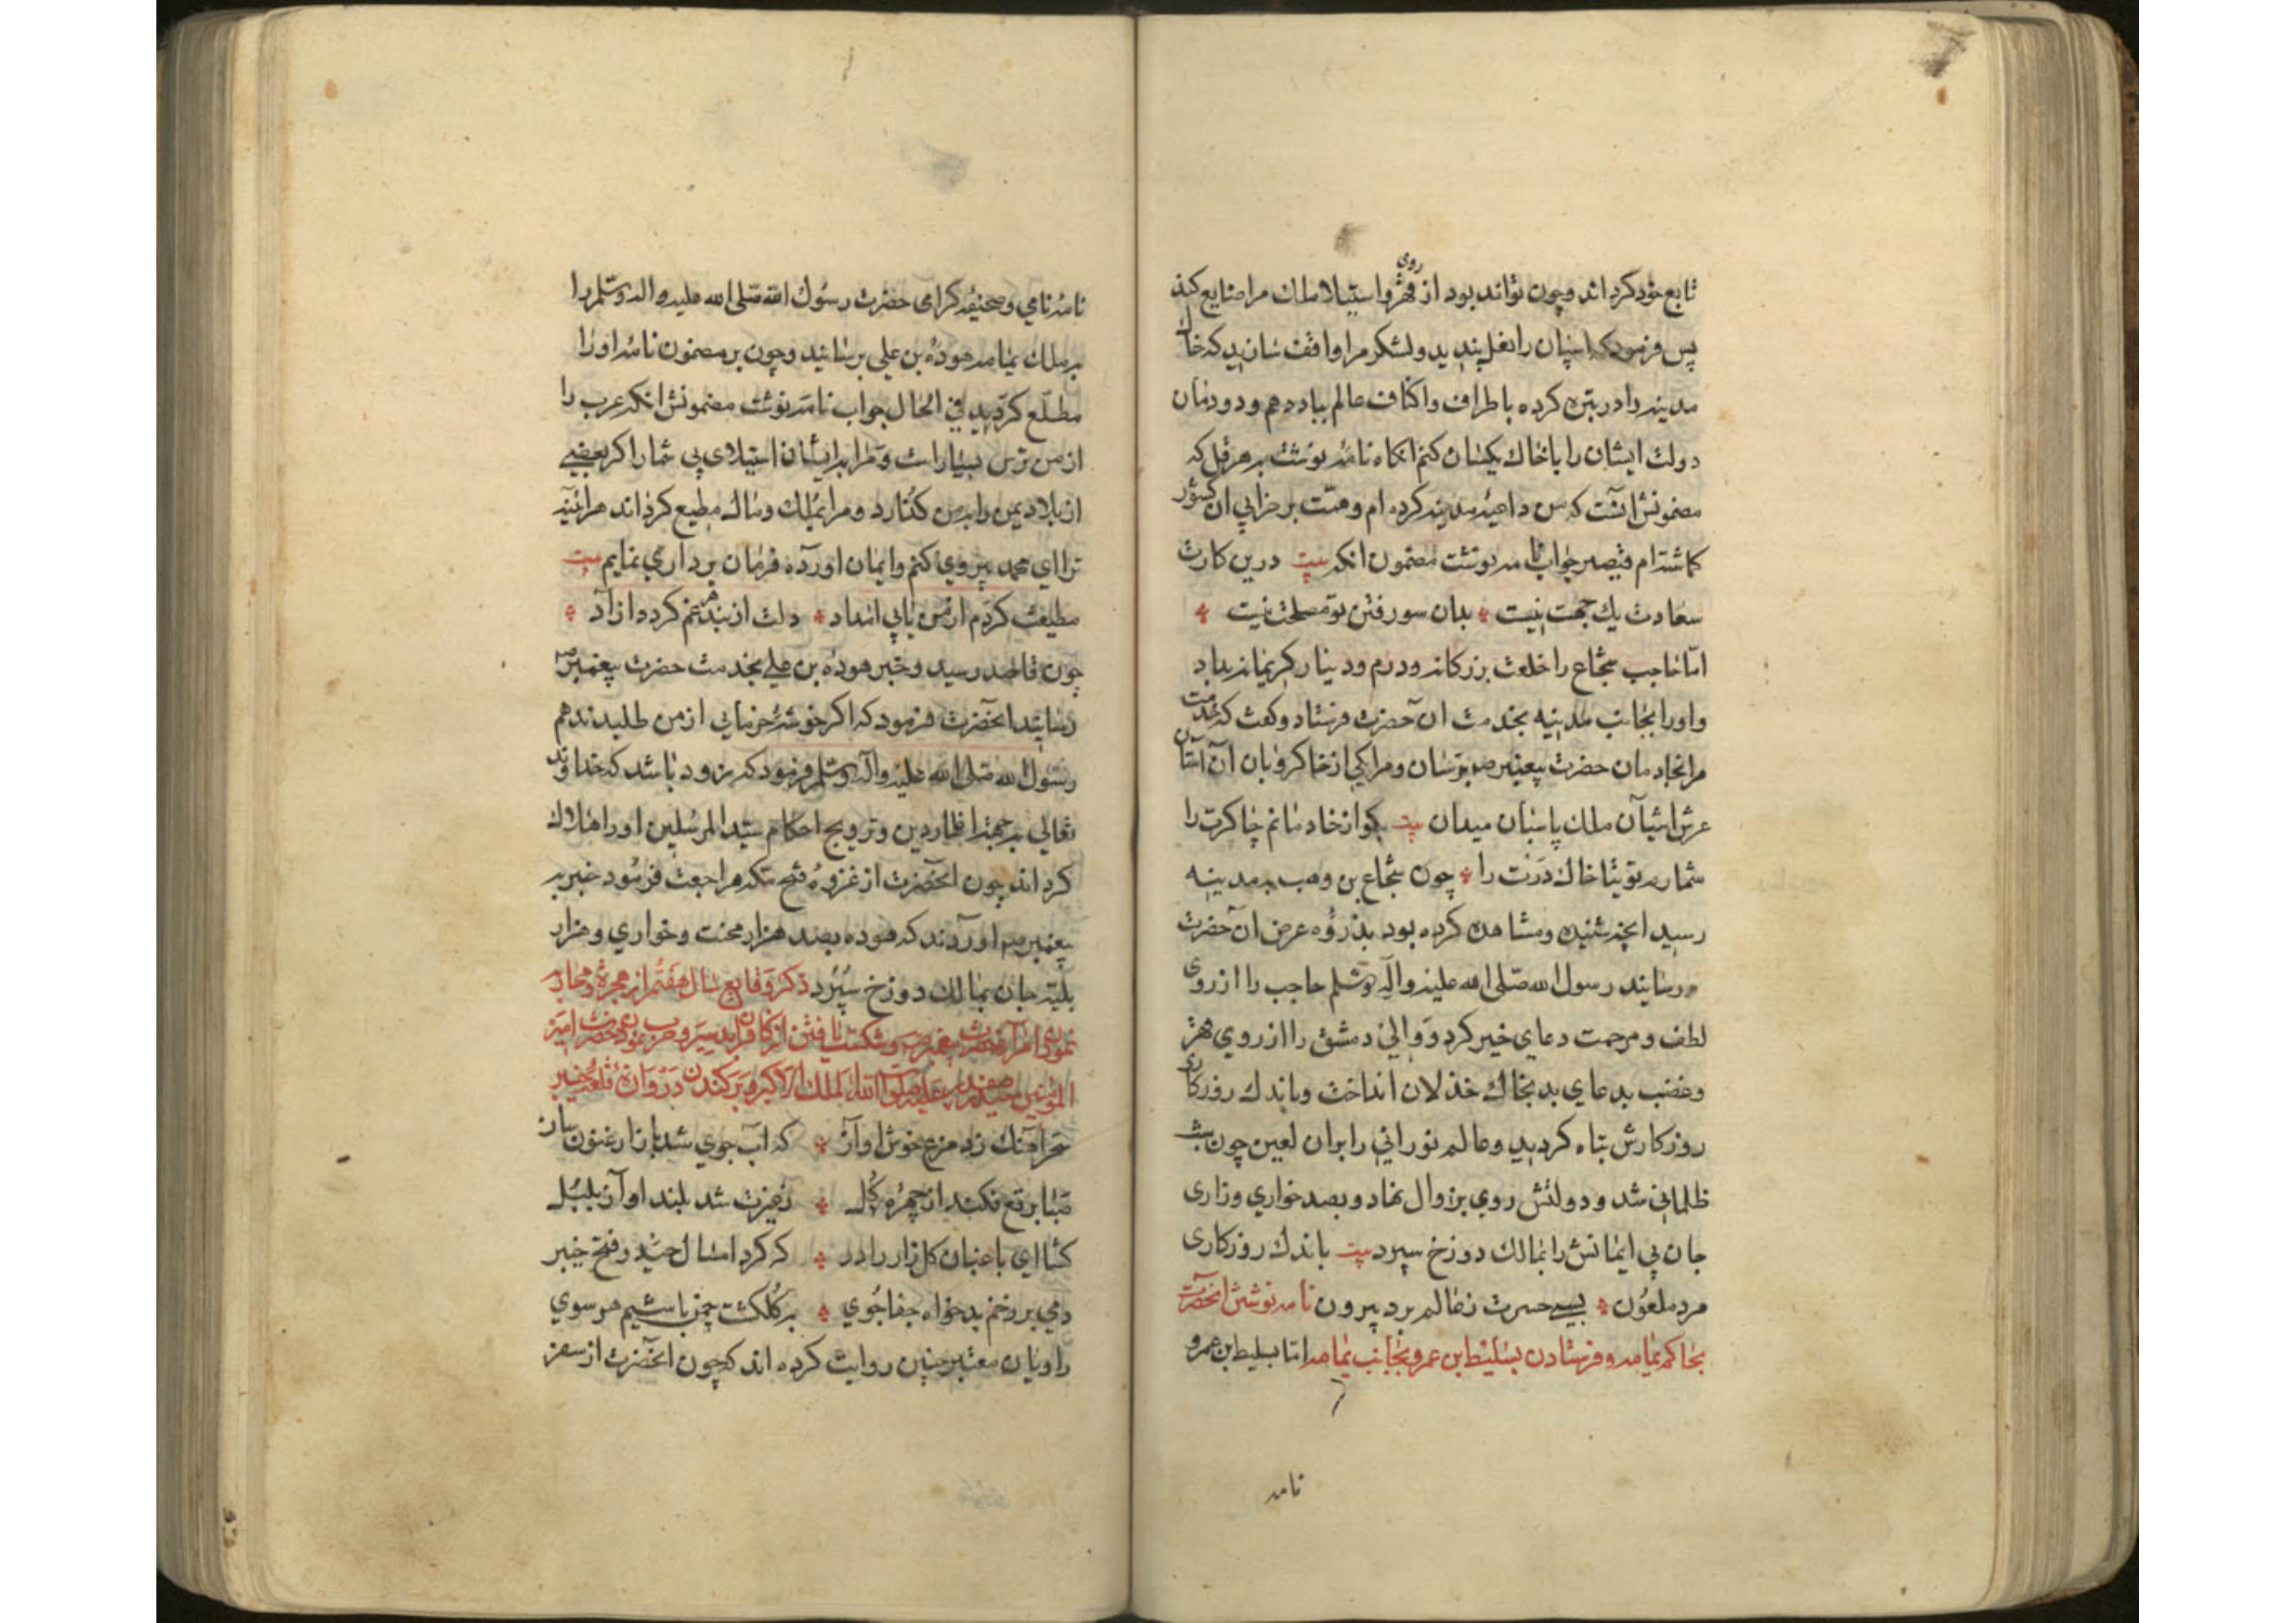 تابع خود کرداند و چون تواند بود از روی قهر و استیلا ملک مرا ضایع کند
پس فرمود که اسپان را نعل بندید و لشکر مرا واقف سازید که خاک
مدینه را در توبره کرده باطراف و اکناف عالم بباد دهم و دودمان
دولت ایشان را با خاک یکسان کنم انکاه نامه نوشت بهرقل که
مضمونش انست که من داعیه مدینه کرده ام و همت بر خرابی ان کشور
کماشته ام قیصر جواب نامه نوشت مضمون انکه بیت درین کارت
سعادت یک جهت نیست بدان سو رفتن تو مصلحت نیست
امّا حاجب شجاع را خلعت بزرکانه و درم و دینار کریمانه بداد
و او را بجانب مدینه بخدمت ان حضرت فرستاد و کفت که خدمت
مرا بخادمان حضرت پیغمبر برسان و مرا یکی از خاکروبان آن آستان
عرش اشیان ملک پاسبان میدان بیت بکو از خادمانم چاکرت را
شمارم توتیا خاک درت را چون شجاع بن وهب بمدینه
رسید انچه شنیده و مشاهده کرده بود بذروه عرض ان حضرت
رسانید رسول الله صلی الله علیه وآله وسلم حاجب را از روی
لطف و مرحمت دعای خیر کرد و والی دمشق را از روی قهر
و غضب بدعای بد بخاک خذلان انداخت و باندک روزکاری
روزکارش تباه کردید و عالم نورانی را بران لعین چون شب
ظلمانی شد و دولتش روی بزوال نهاد و بصد خواری و زاری
جان بی ایمانش را بمالک دوزخ سپرد بیت باندک روزکاری
مرد ملعون بسی حسرت ز عالم برد بیرون نامه نوشتن انحضرت
بحاکم یمامه و فرستادن بسلیط ابن عمرو بجانب یمامه اما بسلیط بن عمرو
نامه
نامه نامی و صحیفه کرامی حضرت رسول الله صلی الله علیه واله وسلم را
بملک یمامه هوده بن علی برسانید و چون بر مضمون نامه او را
مطلع کردید فی الحال جواب نامه نوشت مضمونش انکه عرب را
از من ترس بسیار است و مرا بر ایشان استیلاوی بی شمار اکر بعضی
از بلاد یمن را بمن کذارد و مرا بملک و مال مطیع کرداند هراینه
ترا ای محمد پیروی کنم و ایمان اورده فرمان برداری نمایم بیت
مطیعت کردم ار من یابی امداد دلت از بند غم کردد ازاد
چون قاصد رسید و خبر هوده بن علی بخدمت حضرت پیغمبر
رسانید انحضرت فرمود که اکر خوشه خرمایی از من طلبد ندهم
رسول الله صلی الله علیه وآله وسلم فرمود که زود باشد که خداوند
تعالی بجهة اظهار دین و ترویج احکام سید المرسلین او را هلاک
کرداند چون انحضرت از غزوه فتح مکه مراجعت فرمود خبر به
پیغمبر اوردند که هوده بصد هزار محنت و خواری و هزار
بلیه جان بمالک دوزخ سپرد ذکر وقایع سال هفتم از هجرة و محاربه
نمودن
المؤمنین حیدر صفدر علیه صلوات الله الملک الاکبر و برکندن دروازه قلعه خیبر
سحر اهنک زد مرغ خوش اواز که اب جوی شد باز ارغنون ساز
صبا برقع فکند از چهره کل ز غیرت شد بلند اواز بلبل
کشا ای باغبان کلزار را در که کرد امسال حیدر فتح خیبر
دمی بر رغم بدخواه جفاجوی بکلکشت چمن باشیم هر سوی
راویان معتبر چنین روایت کرده اند که چون انحضرت از سفر